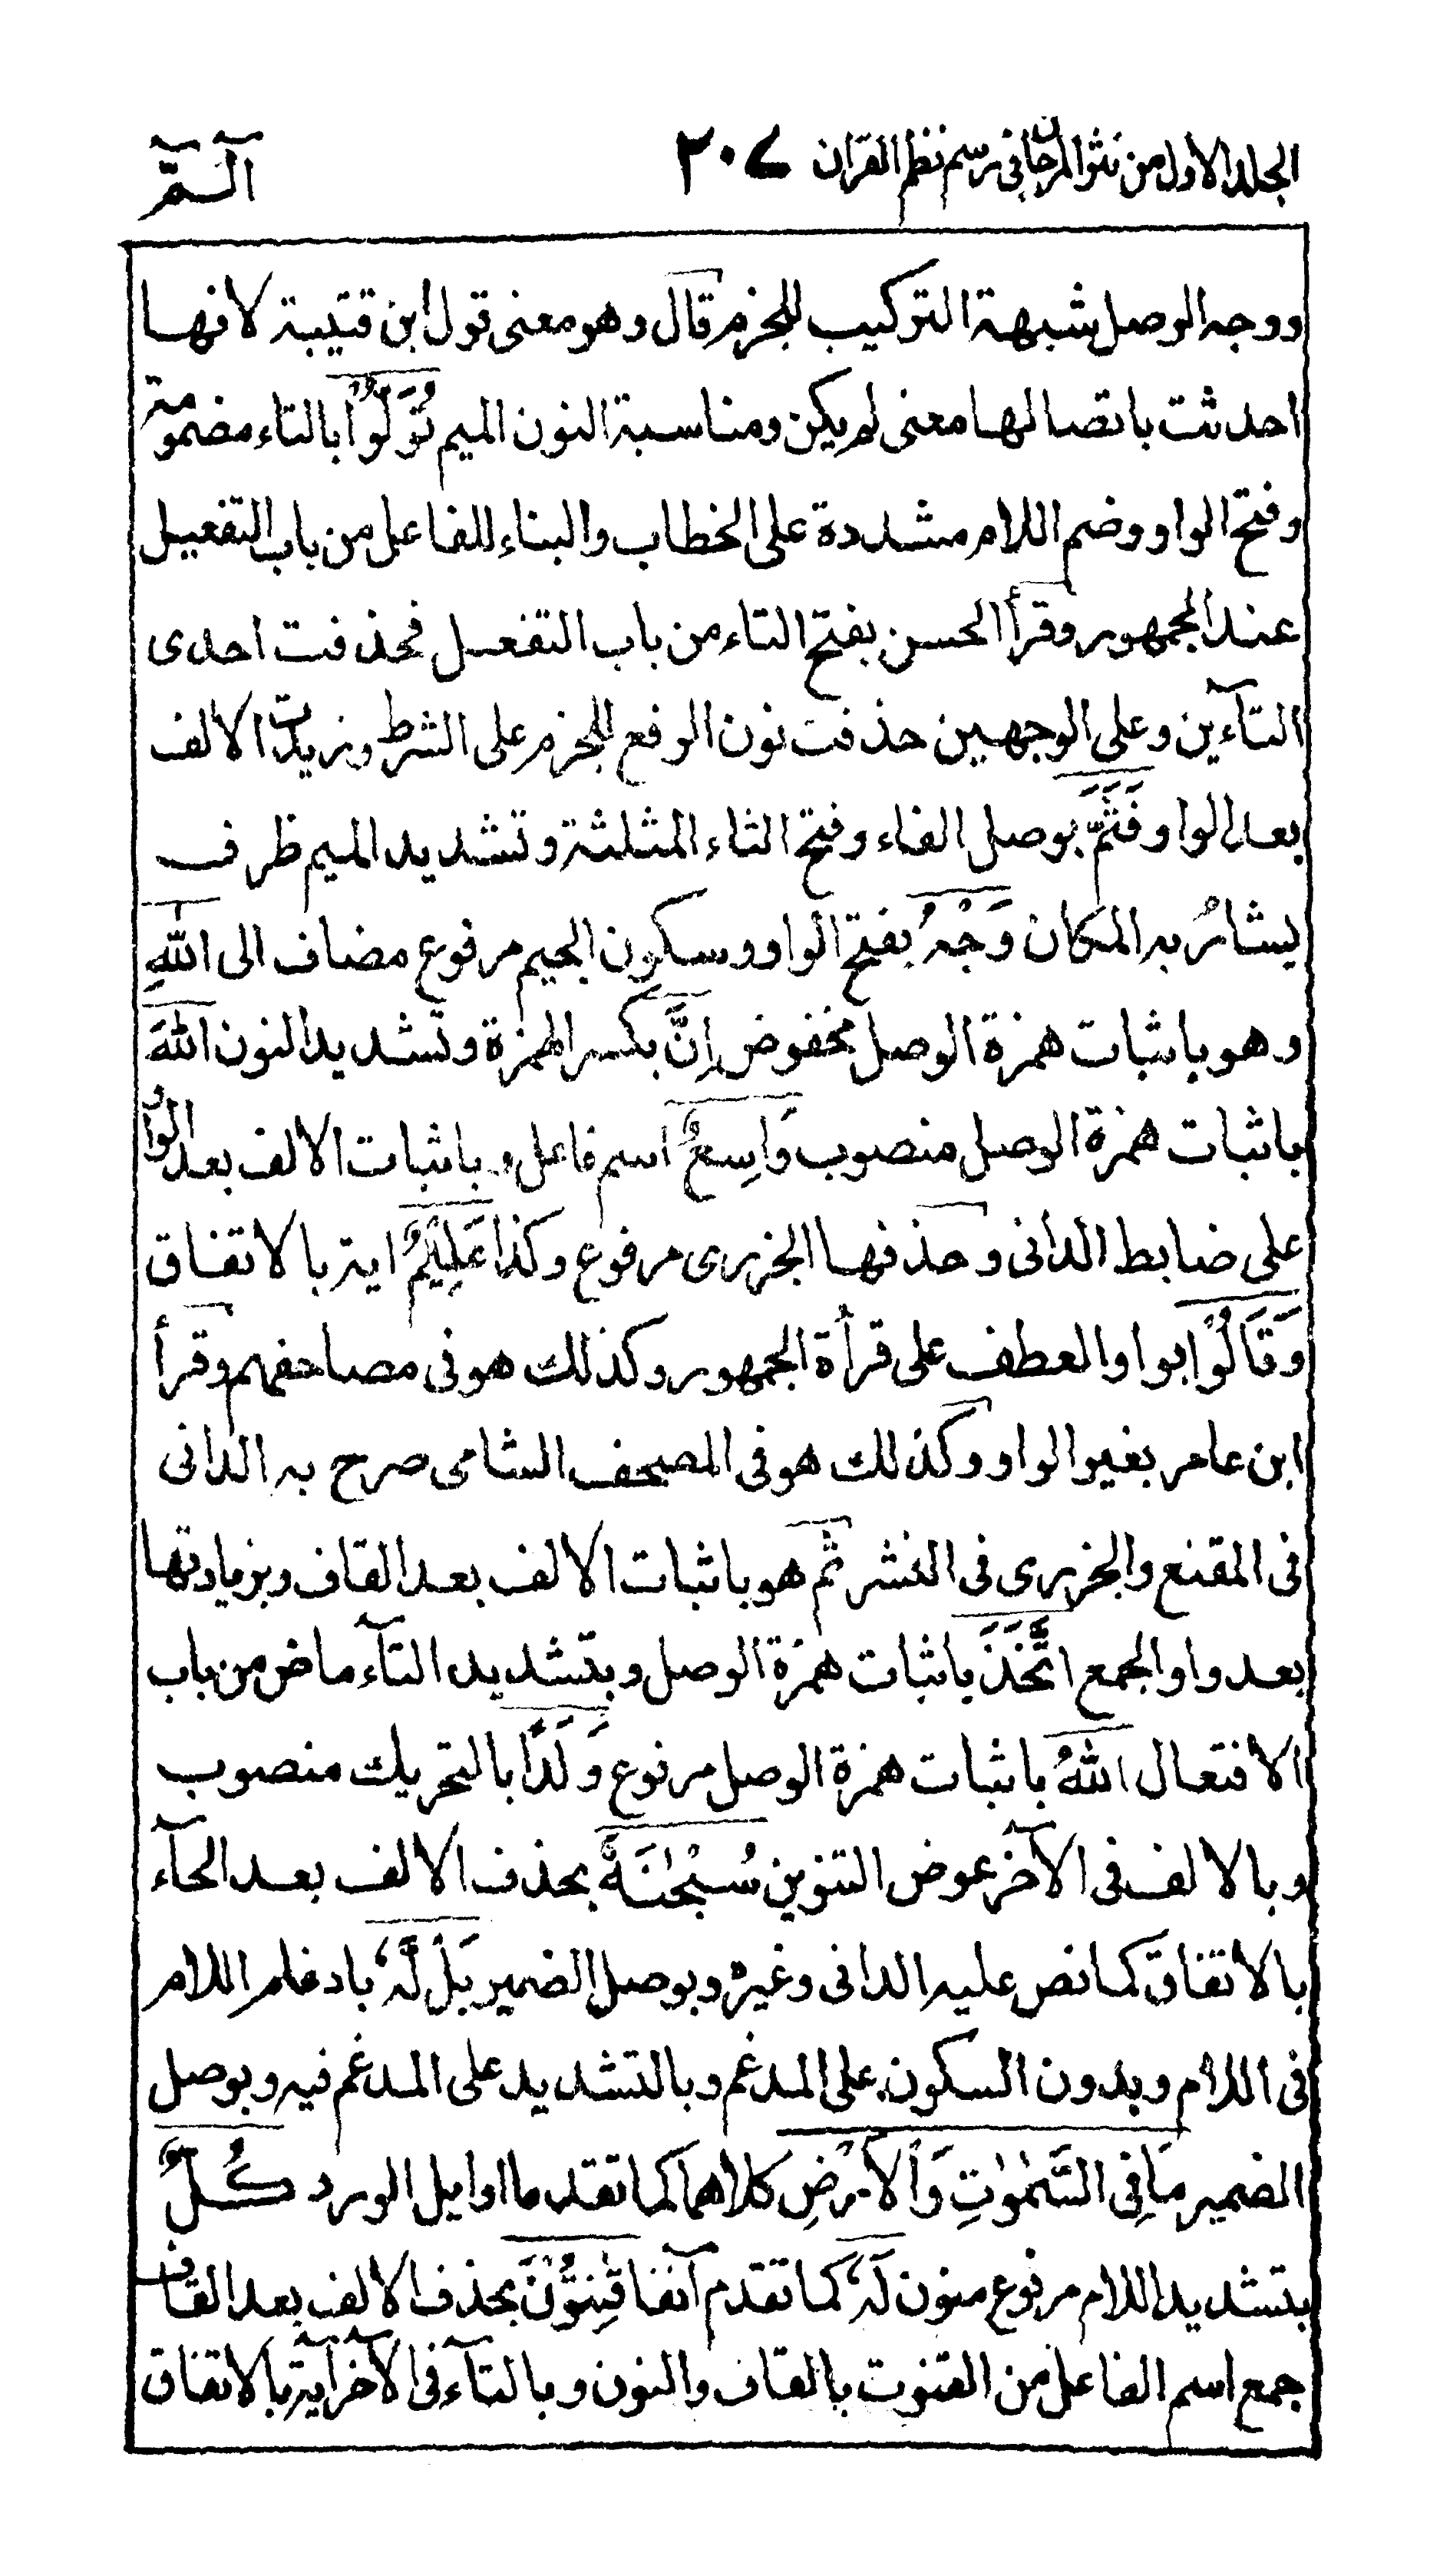 الجلد الاول من نثر المرجان فی رسم نظم القران ٢٠٧ الٓـمّٓ
ووجه الوصل شبهة التركيب للجزم قال وهو معنى قول ابن قتيبة لانها
احدثت باتصالها معنى لم يكن ومناسبة النون الميم تُوَلُّوْا بالتاء مضمومة
وفتح الواو وضم اللام مشددة على الخطاب والبناء للفاعل من باب التفعيل
عند الجمهور وقرأ الحسن بفتح التاء من باب التفعل فحذفت احدى
التآءين وعلى الوجهين حذفت نون الرفع للجزم على الشرط وزيدت الالف
بعد الواو فَثَمَّ بوصل الفاء وفتح الثاء المثلثة وتشديد الميم ظرف
يشارُ به المكان وَجْهُ بفتح الواو وسكون الجيم مرفوع مضاف الى اللّٰهِ
وهو باثبات همزة الوصل مخفوض اِنَّ بكسر الهمزة وتشديد النون اللّٰهَ
باثبات همزة الوصل منصوب وَاسِعٌ اسم فاعل و باثبات الالف بعد الواو
على ضابط الدانى وحذفها الجزرى مرفوع وكذا عَلِيْمٌ اية بالاتفاق
وَقَالُوْا بواو العطف على قرأة الجمهور وكذلك هو فى مصاحفهم وقرأ
ابن عامر بغير الواو وكذلك هو فى المصحف الشامى صرح به الدانى
فى المقنع والجزرى فى النشر ثم هو باثبات الالف بعد القاف وبزيادتها
بعد واو الجمع اتَّخَذَ باثبات همزة الوصل وبتشديد التآء ماض من باب
الافتعال اللّٰهُ باثبات همزة الوصل مرفوع وَلَدًا بالتحريك منصوب
وبالالف فى الآخر عوض التنوين سُبْحٰنَهٗ بحذف الالف بعد الحآء
بالاتفاق كما نص عليه الدانى وغيره وبوصل الضمير بَلْ لَّهٗ بادغام اللام
فى اللام وبدون السكون على المدغم وبالتشديد على المدغم فيه وبوصل
الضمير مَا فِى السَّمٰوٰتِ وَالْاَرْضِ كلاهما كما تقدما اوايل الورد كُلٌّ
بتشديد اللام مرفوع منون لَهٗ كما تقدم آنفا قٰنِتُوْنَ بحذف الالف بعد القاف
جمع اسم الفاعل من القنوت بالقاف والنون وبالتآء فى الآخر آية بالاتفاق